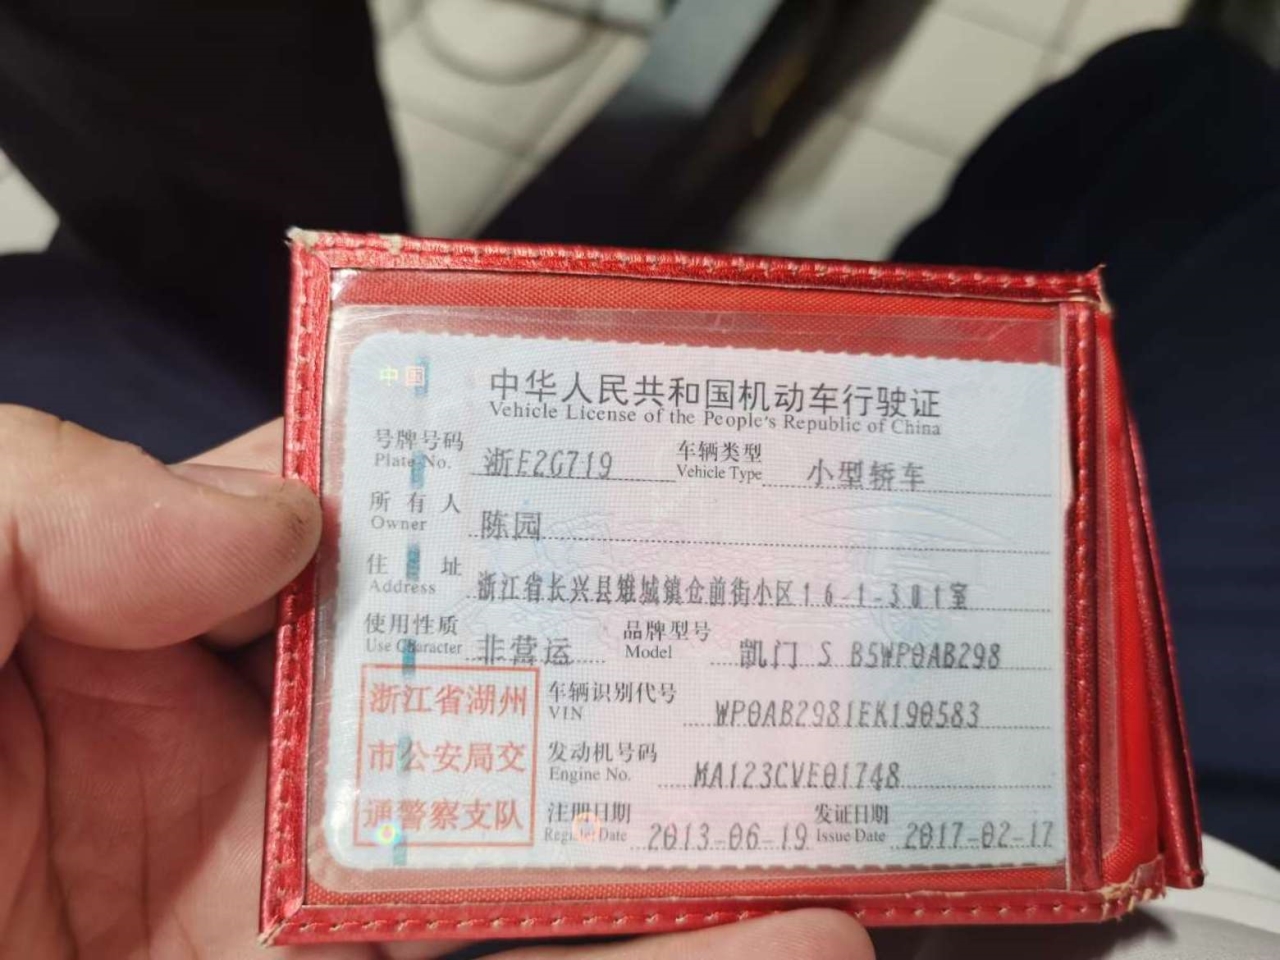 中国
中华人民共和国机动车行驶证
Vehicle License of the People's Republic of China
号牌号码 浙E2G719 车辆类型 小型轿车
Plate No. Vehicle Type
所有人 陈园
Owner
住址 浙江省长兴县雉城镇仓前街小区16-1-301室
Address
使用性质 非营运 品牌型号 凯门 S B5WP0AB298
Use Character Model
浙江省湖州
市公安局交
通警察支队
车辆识别代号 WP0AB2981EK190583
VIN
发动机号码 MA123CVE01748
Engine No.
注册日期 2013-06-19 发证日期 2017-02-17
Register Date Issue Date